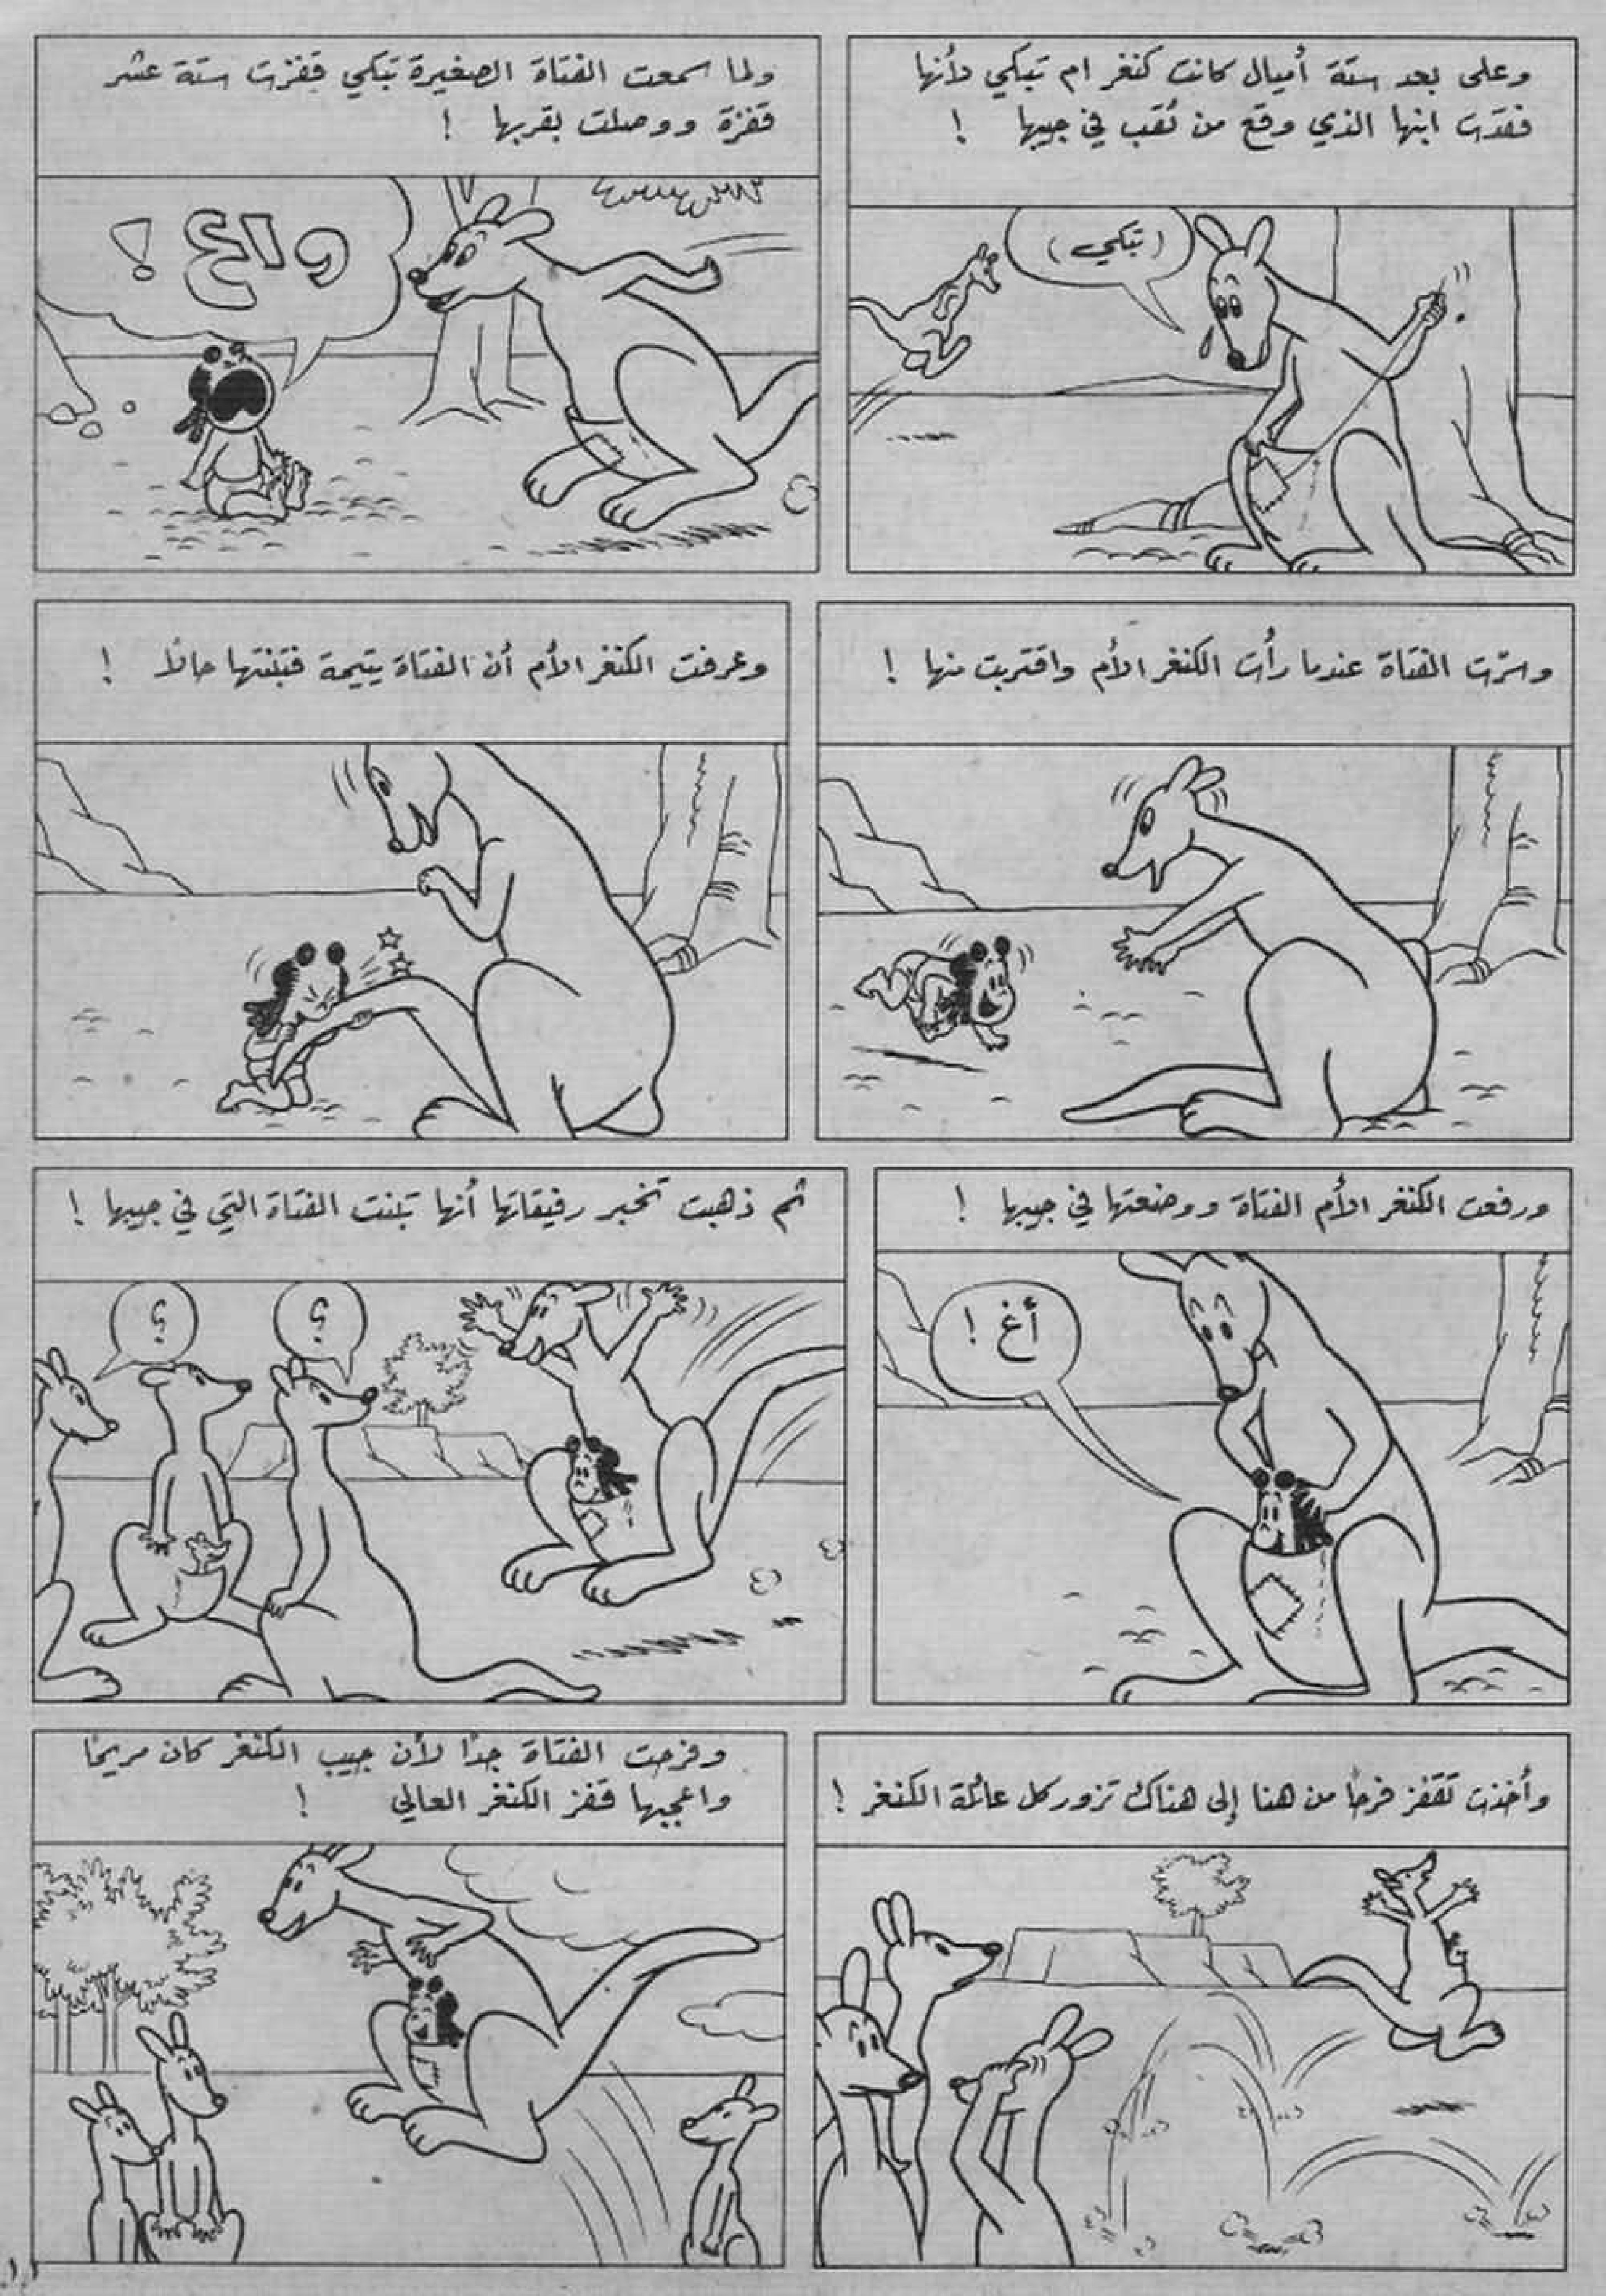 وعلى بعد ستة أميال كانت كنغر ام تبكي لأنها
فقدت ابنها الذي وقع من ثقب في جيبها !
(تبكي)
ولما سمعت الفتاة الصغيرة تبكي قفزت ستة عشر
قفزة ووصلت بقربها !
واع !
وسرّت الفتاة عندما رأت الكنغر الأم واقتربت منها !
وعرفت الكنغر الأم أن الفتاة يتيمة فتبنتها حالاً !
ورفعت الكنغر الأم الفتاة ووضعتها في جيبها !
أغ !
ثم ذهبت تخبر رفيقاتها أنها تبنت الفتاة التي في جيبها !
؟
؟
وأخذت تقفز فرحاً من هنا إلى هناك تزور كل عائلة الكنغر !
وفرحت الفتاة جداً لأن جيب الكنغر كان مريحاً
واعجبها قفز الكنغر العالي !